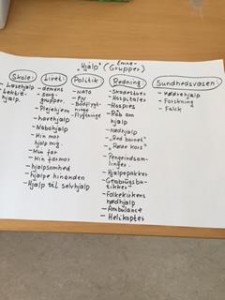 "Hjælp" (Emne-
Grupper)
Skole
- Læsehjælp
- Lektie-
hjælp.
Livet!
- demens
- Sorg-
grupper.
- Plejehjem
- havehjælp
- Nabohjælp
- Kin mor
hjalp mig.
- Kin far
- Kin farmor
- hjælpsomhed
- hjælpe hinanden
- Hjælp til selvhjælp
Politik
- Nato
- FN
- Flygtninge
Redning
- Hospitaler
- Hospice
- Råb om
hjælp
- nødhjælp
- "Red barnet"
- "Røde Kors"
- Hjælpepakker
- Genbrugsbu-
tikker
- Folkekirkens
nødhjælp
- Ambulance
- Helikopter
Sundhedsvæsen
- Forskning
- Falck